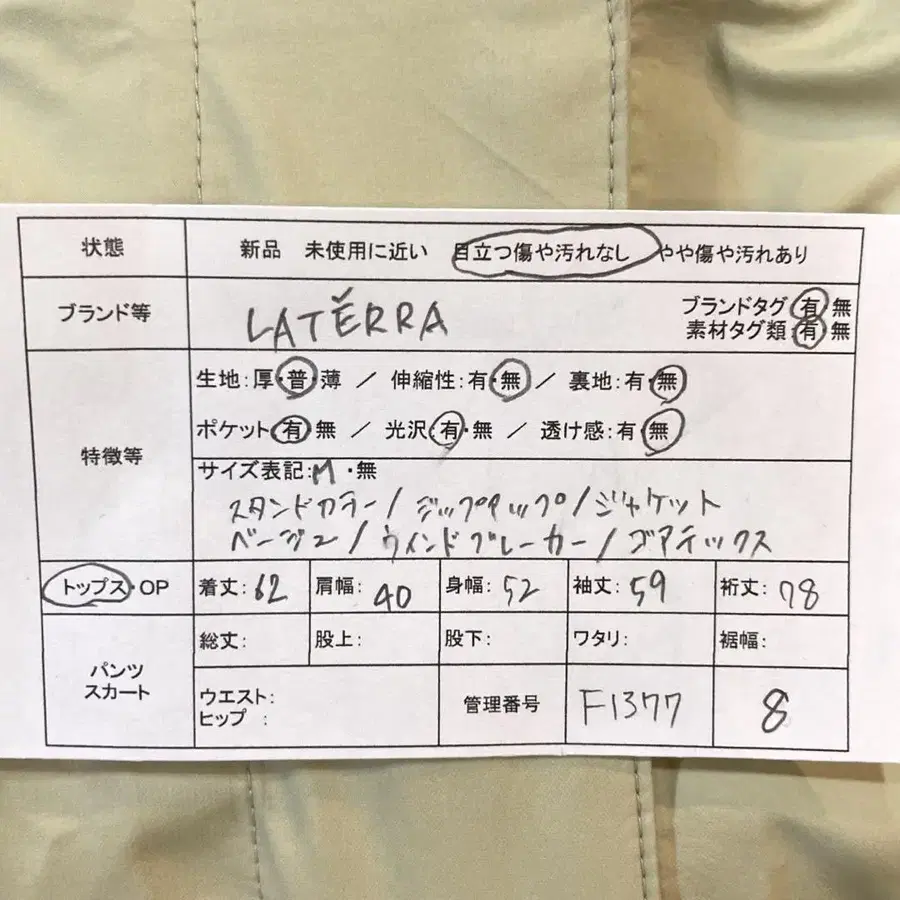 状態 新品 未使用に近い 目立つ傷や汚れなし やや傷や汚れあり
ブランド等 LATĚRRA ブランドタグ 有 無
素材タグ類:有・無
特徴等
生地:厚・普・薄 / 伸縮性:有・無 / 裏地:有・無
ポケット 有・無 / 光沢:有・無 / 透け感:有・無
サイズ表記:M・無
スタンドカラー/ジップアップ/ジャケット
ベージュ/ウインドブレーカー/ゴアテックス
トップス・OP 着丈:62 肩幅:40 身幅:52 袖丈:59 裄丈:78
パンツ
スカート
総丈: 股上: 股下: ワタリ: 裾幅:
ウエスト:
ヒップ :
管理番号 F1377 8